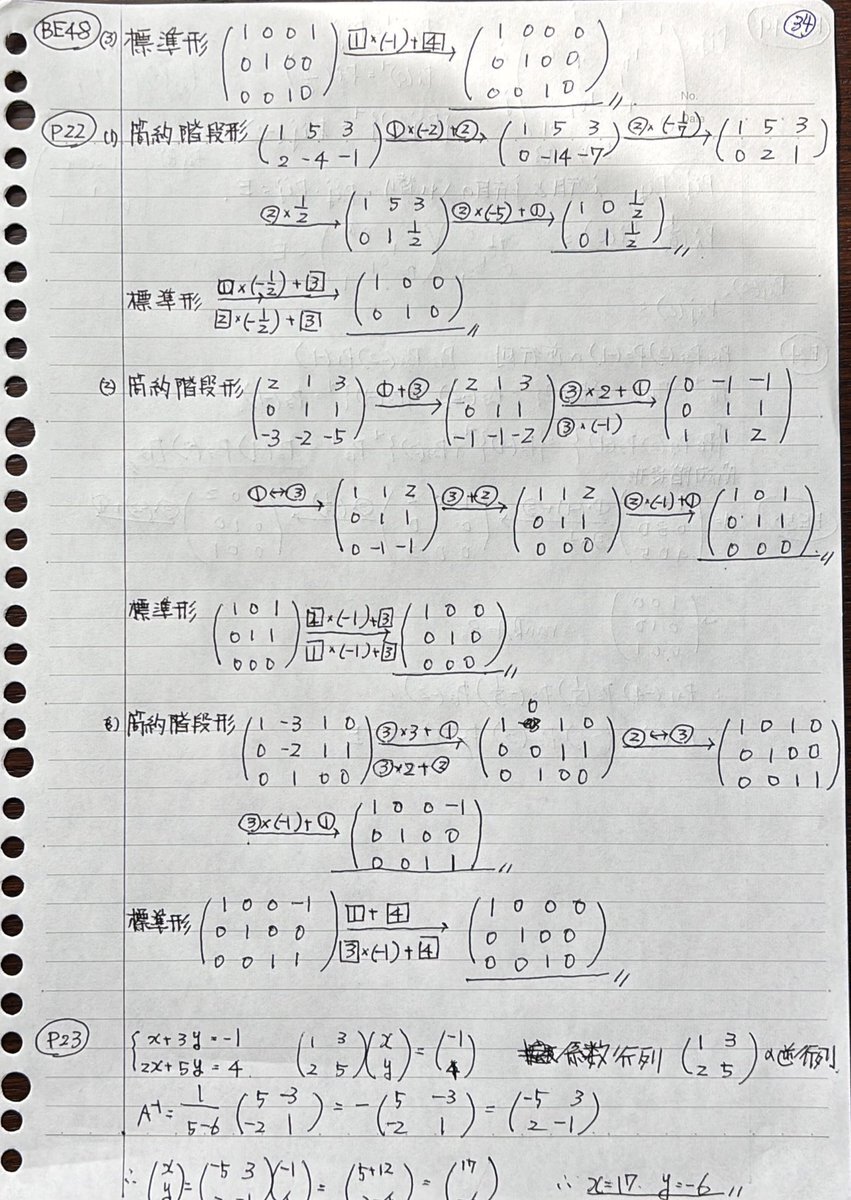 34
BE48 (3) 標準形 (1 0 0 1 / 0 1 0 0 / 0 0 1 0) →[1]×(-1)+[4] (1 0 0 0 / 0 1 0 0 / 0 0 1 0)
No.
P22 (1) 簡約階段形 (1 5 3 / 2 -4 -1) →①×(-2)+② (1 5 3 / 0 -14 -7) →②×(-1/7) (1 5 3 / 0 2 1)
→②×1/2 (1 5 3 / 0 1 1/2) →②×(-5)+① (1 0 1/2 / 0 1 1/2)
標準形 →[1]×(-1/2)+[3] [2]×(-1/2)+[3] (1 0 0 / 0 1 0)
(2) 簡約階段形 (2 1 3 / 0 1 1 / -3 -2 -5) →①+③ (2 1 3 / 0 1 1 / -1 -1 -2) →③×2+① ③×(-1) (0 -1 -1 / 0 1 1 / 1 1 2)
→①↔③ (1 1 2 / 0 1 1 / 0 -1 -1) →③+② (1 1 2 / 0 1 1 / 0 0 0) →②×(-1)+① (1 0 1 / 0 1 1 / 0 0 0)
標準形 (1 0 1 / 0 1 1 / 0 0 0) →[2]×(-1)+[3] [1]×(-1)+[3] (1 0 0 / 0 1 0 / 0 0 0)
簡約階段形 (1 -3 1 0 / 0 -2 1 1 / 0 1 0 0) →③×3+① ③×2+② (1 0 1 0 / 0 0 1 1 / 0 1 0 0) →②↔③ (1 0 1 0 / 0 1 0 0 / 0 0 1 1)
→③×(-1)+① (1 0 0 -1 / 0 1 0 0 / 0 0 1 1)
標準形 (1 0 0 -1 / 0 1 0 0 / 0 0 1 1) →[1]+[4] [3]×(-1)+[4] (1 0 0 0 / 0 1 0 0 / 0 0 1 0)
P23 {x+3y=-1 / 2x+5y=4 (1 3 / 2 5)(x / y)=(-1 / 4) 係数行列 (1 3 / 2 5) の逆行列
A⁻¹=1/(5-6) (5 -3 / -2 1) = -(5 -3 / -2 1) = (-5 3 / 2 -1)
∴ (x / y)=(-5 3 / 2 -1)(-1 / 4) = (5+12 = (17 ∴ x=17. y=-6